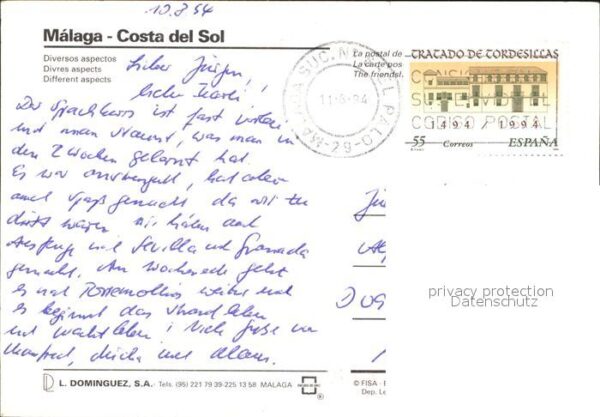 10.8.94
Málaga - Costa del Sol
Diversos aspectos
Divres aspects
Different aspects
La postal de
La carte pos
The friendsl
TRATADO DE TORDESILLAS
1494 / 1994
55 Correos ESPAÑA
MALAGA SUC. N EL PALO
11-8-94
-29-
CODIGO POSTAL
Lieber Jürgen!
Der Sprachkurs ist fast vorbei
und man staunt, was man in
den 2 Wochen gelernt hat.
Es war anstrengend, hat aber
auch Spaß gemacht da wir zu
dritt waren. Wir haben auch
Ausflüge nach Sevilla und Granada
gemacht. Am Wochenende geht
es nach Torremolinos weiter und
es beginnt das Strandleben
und Nachtleben! Viele Grüße von
Manfred,
privacy protection
Datenschutz
L. DOMINGUEZ, S.A. - Tels. (95) 221 79 39-225 13 58 MALAGA
© FISA - E
Dep. Le